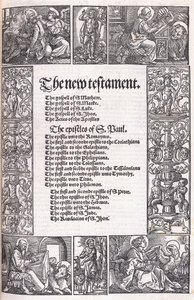 The new testament.
The gospell of S. Mathew.
The gospell of S. Marke.
The gospell of S. Luke.
The gospell of S. Jhon.
The Actes of the Apostles
The epistles of S. Paul.
The epistle unto the Romaynes.
The first and seconde epistle to the Corinthians
The epistle to the Galathians.
The epistle to the Ephesians.
The epistle to the Philippians.
The epistle to the Colossians.
The first and seconde epistle to the Tessalonians
The first and seconde epistle unto Tymothy.
The epistle unto Titus.
The epistle unto Philemon.
The first and seconde epistle of S. Peter.
The thre epistles of S. Jhon.
The epistle unto the Hebrues.
The epistle of S. James.
The epistle of S. Jude.
The Revelacion of S. Jhon.